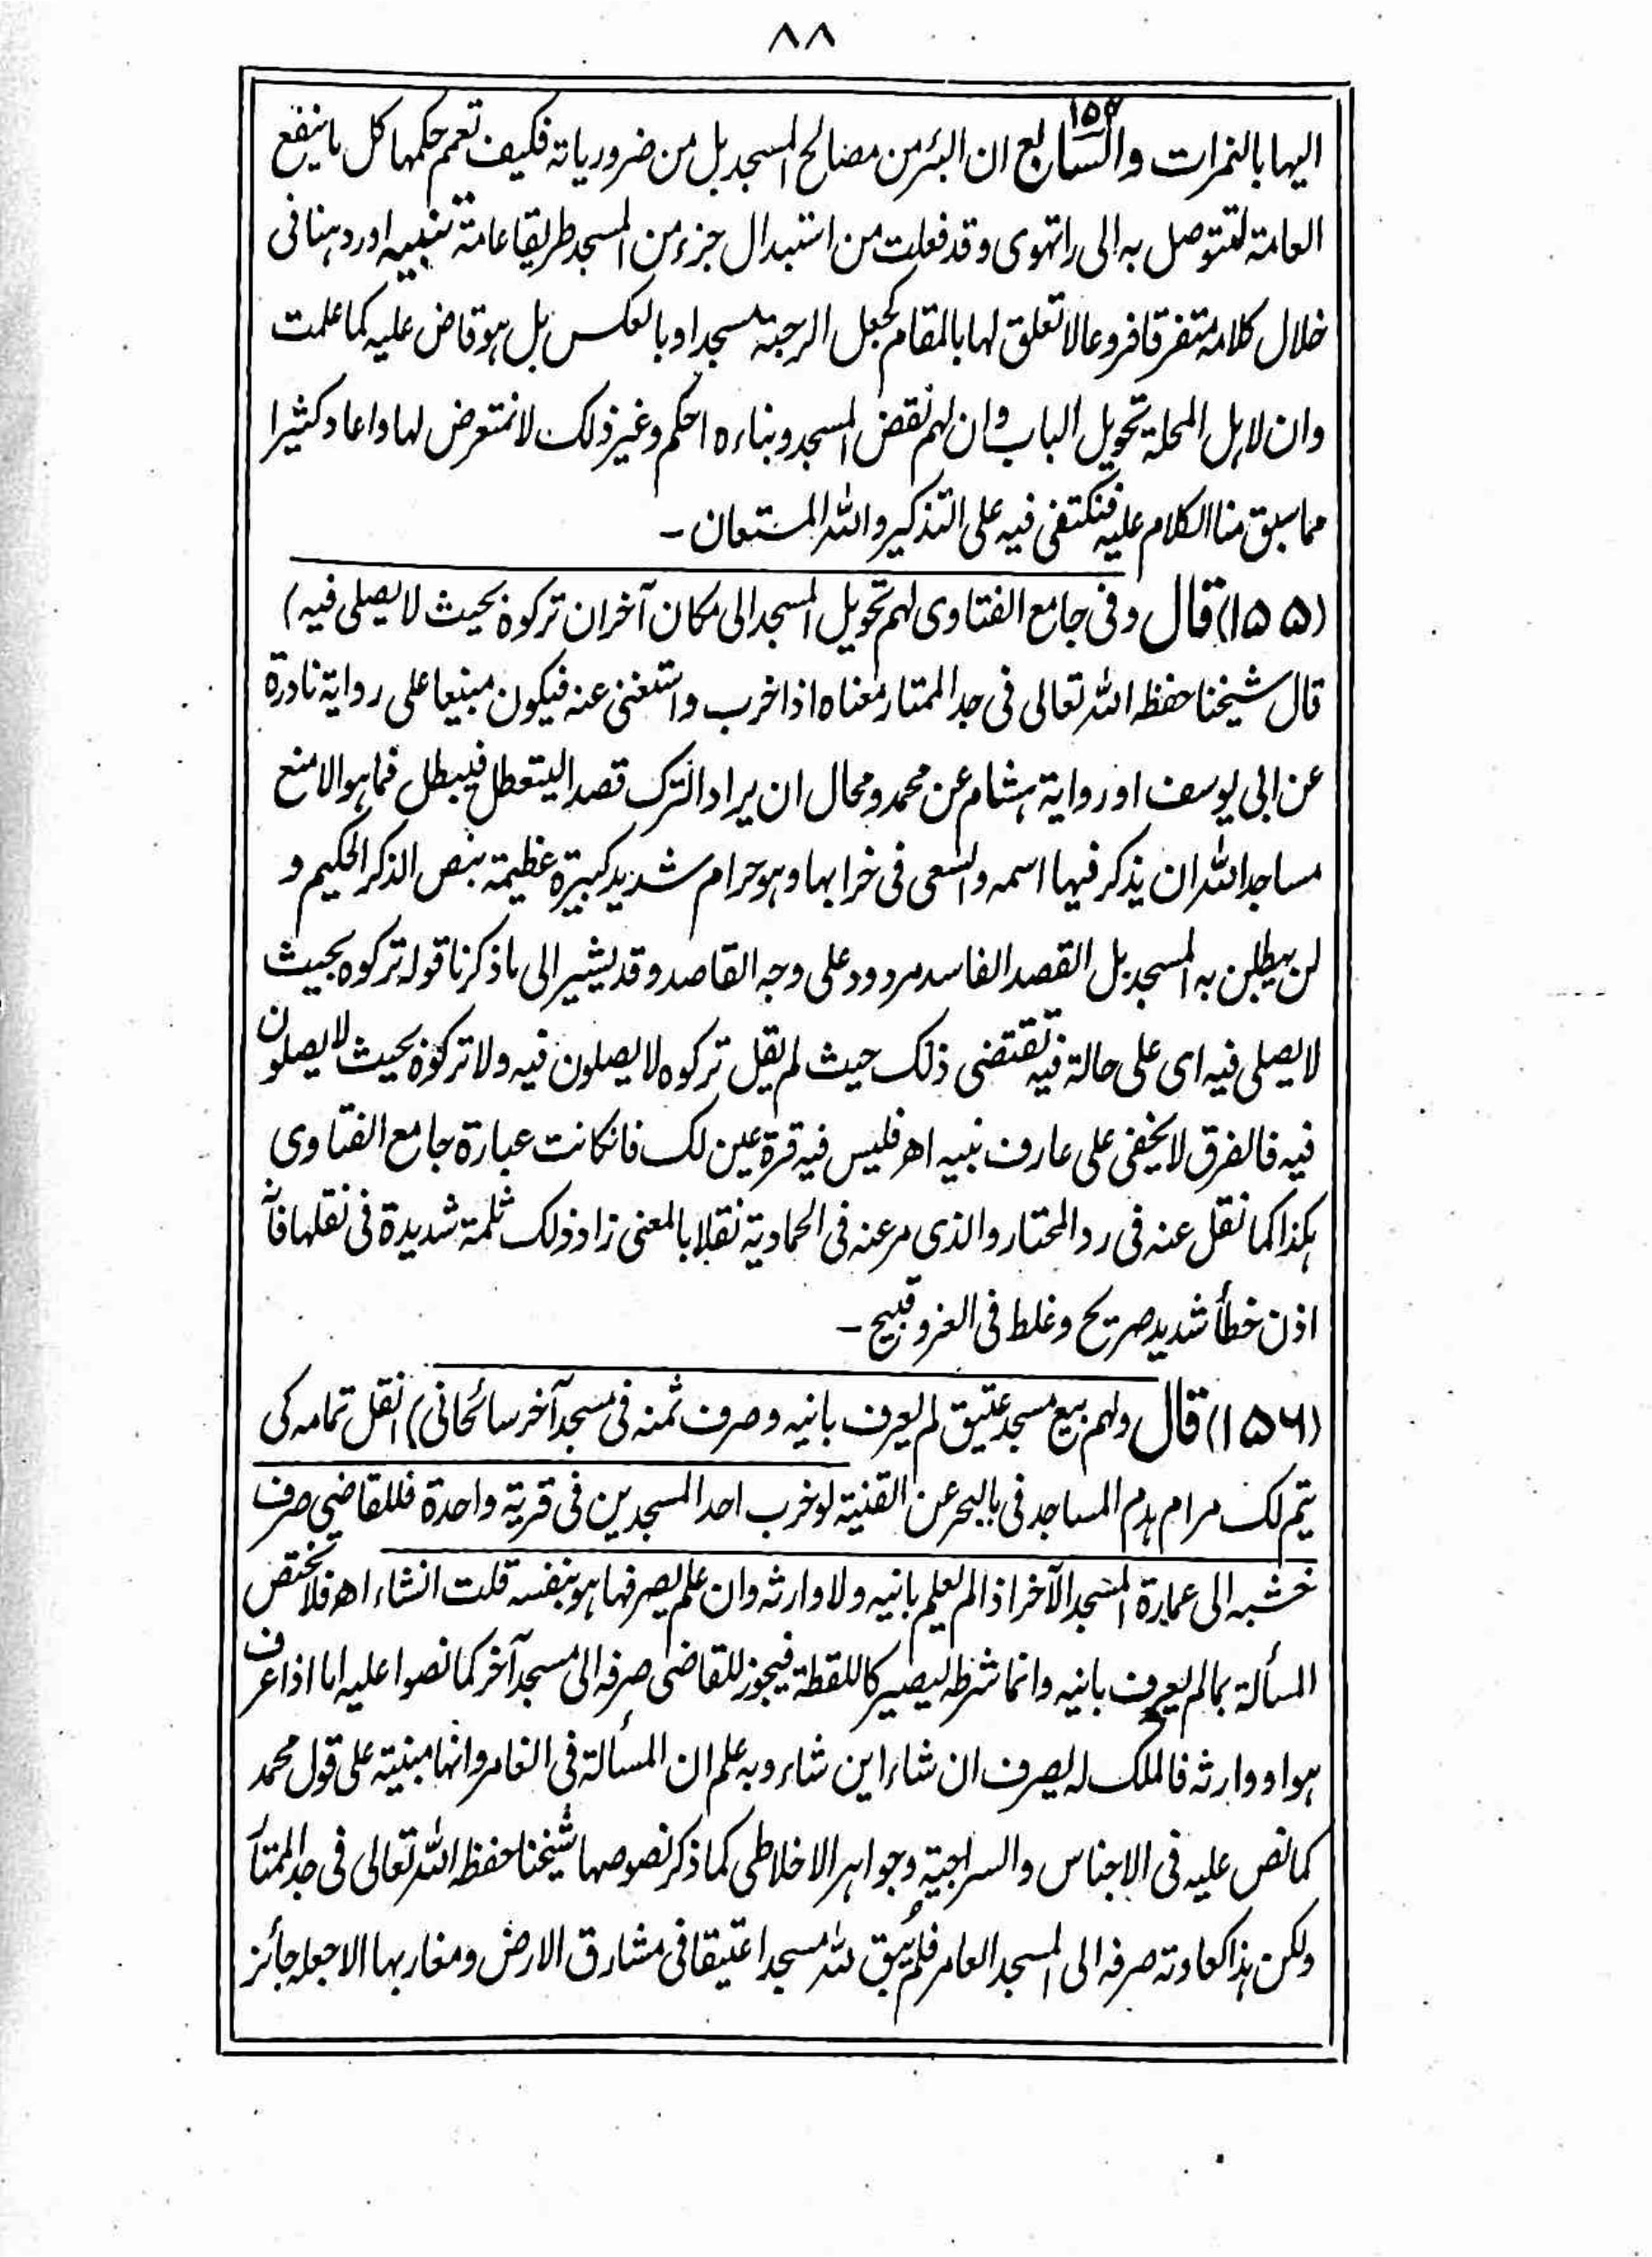 ٨٨
اليها بالنمرات والسابع ١٥٤ ان البئر من مصالح المسجد بل من ضرورياته فكيف تعمم حكمها كل ما ينفع
العامة لتتوصل به الى ما تهوى وقد فعلت من استبدال جزء من المسجد طريقا عامة تنبيه اورد هنا فى
خلال كلامه متفرقا فروعا لا تعلق لها بالمقام كجعل الرحبة مسجدا وبالعكس بل هو قاض عليه كما علمت
وان لاهل المحلة تحويل الباب وان لهم نقض المسجد وبناءه احكم وغير ذلك لا نتعرض لها واعاد كثيرا
مما سبق منا الكلام عليه فنكتفى فيه على التذكير والله المستعان ـ
(١٥٥) قال وفى جامع الفتاوى لهم تحويل المسجد الى مكان آخر ان تركوه بحيث لا يصلى فيه)
قال شيخنا حفظه الله تعالى فى جد الممتار معناه اذا خرب واستغنى عنه فيكون مبنيا على رواية نادرة
عن ابى يوسف او رواية هشام عن محمد ومحال ان يراد الترك قصدا ليتعطل فيبطل فما هو الا منع
مساجد الله ان يذكر فيها اسمه والسعى فى خرابها وهو حرام شديد كبيرة عظيمة بنص الذكر الحكيم و
لن يبطلن به المسجد بل القصد الفاسد مردود على وجه القاصد وقد يشير الى ما ذكرنا قوله تركوه بحيث
لا يصلى فيه اى على حالة فيه تقتضى ذلك حيث لم يقل تركوه لا يصلون فيه ولا تركوه بحيث لا يصلون
فيه فالفرق لا يخفى على عارف نبيه اھ فليس فيه قرة عين لك فان كانت عبارة جامع الفتاوى
هكذا كما نقل عنه فى رد المحتار والذى مر عنه فى الحمادية نقلا بالمعنى زاد ذلك ثلمة شديدة فى نقلها فانه
اذن خطأ شديد صريح وغلط فى العزو قبيح ـ
(١٥٦) قال ولهم بيع مسجد عتيق لم يعرف بانيه وصرف ثمنه فى مسجد آخر سائحانى) انقل تمامه كى
يتم لك مرام هدم المساجد فى بالبحر عن القنية لو خرب احد المسجدين فى قرية واحدة فللقاضى صرف
خشبه الى عمارة المسجد الآخر اذا لم يعلم بانيه ولا وارثه وان علم يصرفها هو بنفسه قلت ان شاء اھ فلا تختص
المسألة بما لم يعرف بانيه وانما شرطه ليصير كاللقطة فيجوز للقاضى صرفه الى مسجد آخر كما نصوا عليه اما اذا عرف
هو او وارثه فالملك له يصرف ان شاء اين شاء وبه علم ان المسألة فى الغامر وانها مبنية على قول محمد
كما نص عليه فى الاجناس والسراجية وجواهر الاخلاطى كما ذكر نصوصها شيخنا حفظه الله تعالى فى جد الممتار
ولكن هذا كعادته صرفه الى المسجد العامر فلم يبق لله مسجدا عتيقا فى مشارق الارض ومغاربها الا جعله جائز